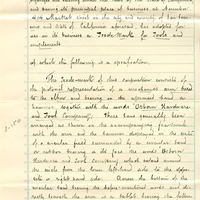 and having its principal place of business at number
414 Market Street in the city and county of San Fran-
cisco and State of California aforesaid, has adopted for
use in its business a Trade-Mark for Tools and
Implements
of which the following is a specification.
The trade-mark of this corporation consists of
the pictorial representation of a mechanic's arm, bared
to the elbow and bearing on the upraised hand a
together with the words Osborn Hardware
and Tool Company. These have generally been
arranged as shown on the accompanying facsimile
with the arm and the hammer displayed in the center
of a circular field surrounded by an annular band
or ribbon bearing the words Osborn
Hardware and Tool Company which extend around
the circle from the lower left-hand side to the oppo-
site or right hand side. Across the bottom of the
annular band bearing the before-mentioned words and di-
rectly beneath the arm is a tablet bearing the follow